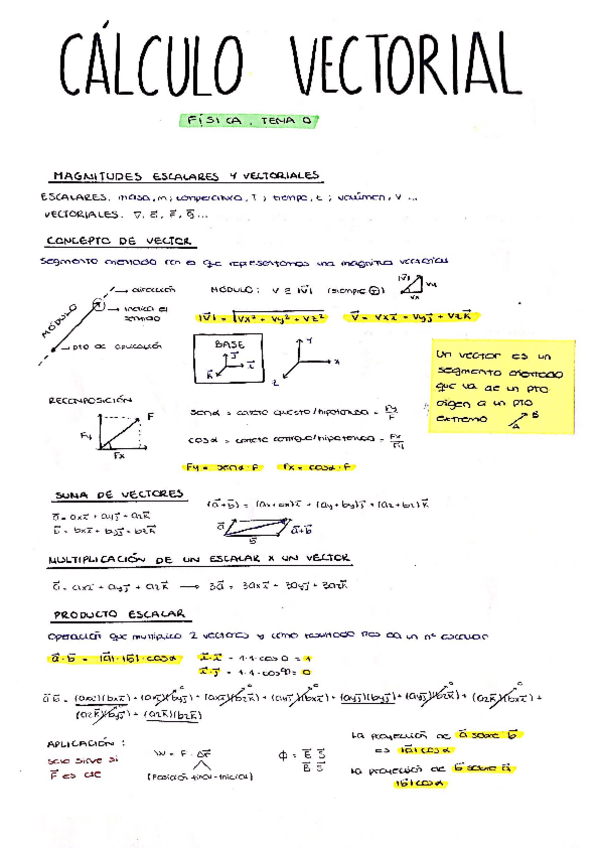 CÁLCULO VECTORIAL
FÍSICA. TEMA 0
MAGNITUDES ESCALARES Y VECTORIALES
ESCALARES. masa, m; temperatura, T; tiempo, t; volúmen, V ...
VECTORIALES.
CONCEPTO DE VECTOR
segmento orientado con el que representamos una magnitud vectorial
→ dirección
→ indica el
sentido
MÓDULO
→ pto de aplicación
MÓDULO: V ≡ |V⃗| (siempre ⊕)
|V⃗|
Vy
Vx
|V⃗| = √Vx² + Vy² + Vz²
V⃗ = Vx i⃗ + Vy j⃗ + Vz k⃗
BASE
j⃗
i⃗
k⃗
Y
X
Z
Un vector es un
segmento orientado
que va de un pto
origen a un pto
extremo
A
B
F
Fy
Fx
senα = cateto opuesto/hipotenusa = Fy/F
cosα = cateto contiguo/hipotenusa =
Fy = senα · F
Fx = cosα · F
SUMA DE VECTORES
a⃗ = ax i⃗ + ay j⃗ + az k⃗
b⃗ = bx i⃗ + by j⃗ + bz k⃗
(a⃗+b⃗) = (ax+bx) i⃗ + (ay+by) j⃗ + (az+bz) k⃗
a⃗
b⃗
a⃗+b⃗
MULTIPLICACIÓN DE UN ESCALAR X UN VECTOR
a⃗ = ax i⃗ + ay j⃗ + az k⃗ → 3a⃗ = 3ax i⃗ + 3ay j⃗ + 3az k⃗
PRODUCTO ESCALAR
operación que multiplica 2 vectores y como resultado nos da un nº escalar
a⃗·b⃗ = |a⃗|·|b⃗|·cosα
i⃗·i⃗ = 1·1·cos 0 = 1
i⃗·j⃗ = 1·1·cos 90 = 0
a⃗·b⃗ = (ax i⃗)(bx i⃗) + (ax i⃗)(by j⃗) +
(az k⃗)(by j⃗) + (az k⃗)(bz k⃗)
APLICACIÓN:
solo sirve si
F⃗ es cte
W = F⃗ · Δr⃗
(posición final - inicial)
La proyección de a⃗ sobre b⃗
es |a⃗| cosα
La proyección de b⃗ sobre a⃗
|b⃗| cosα